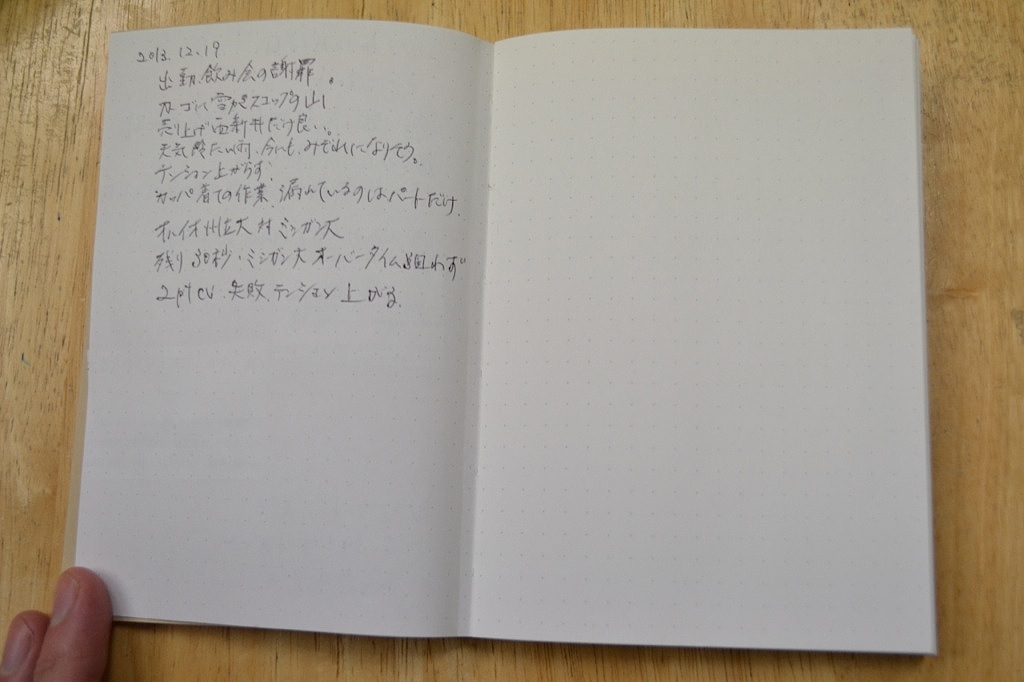 2013.12.19
出勤、飲み会の謝罪。
カゴに雪かきスコップの山
売り上げ西新井だけ良い。
天気 冷たい雨、今にも、みぞれになりそう。
テンション上がらず、
カッパ着ての作業、濡れているのはパートだけ
オハイオ州立大 対 ミシガン大
残り30秒・ミシガン大 オーバータイム狙わず
2pt cv. 失敗、テンション上がる。